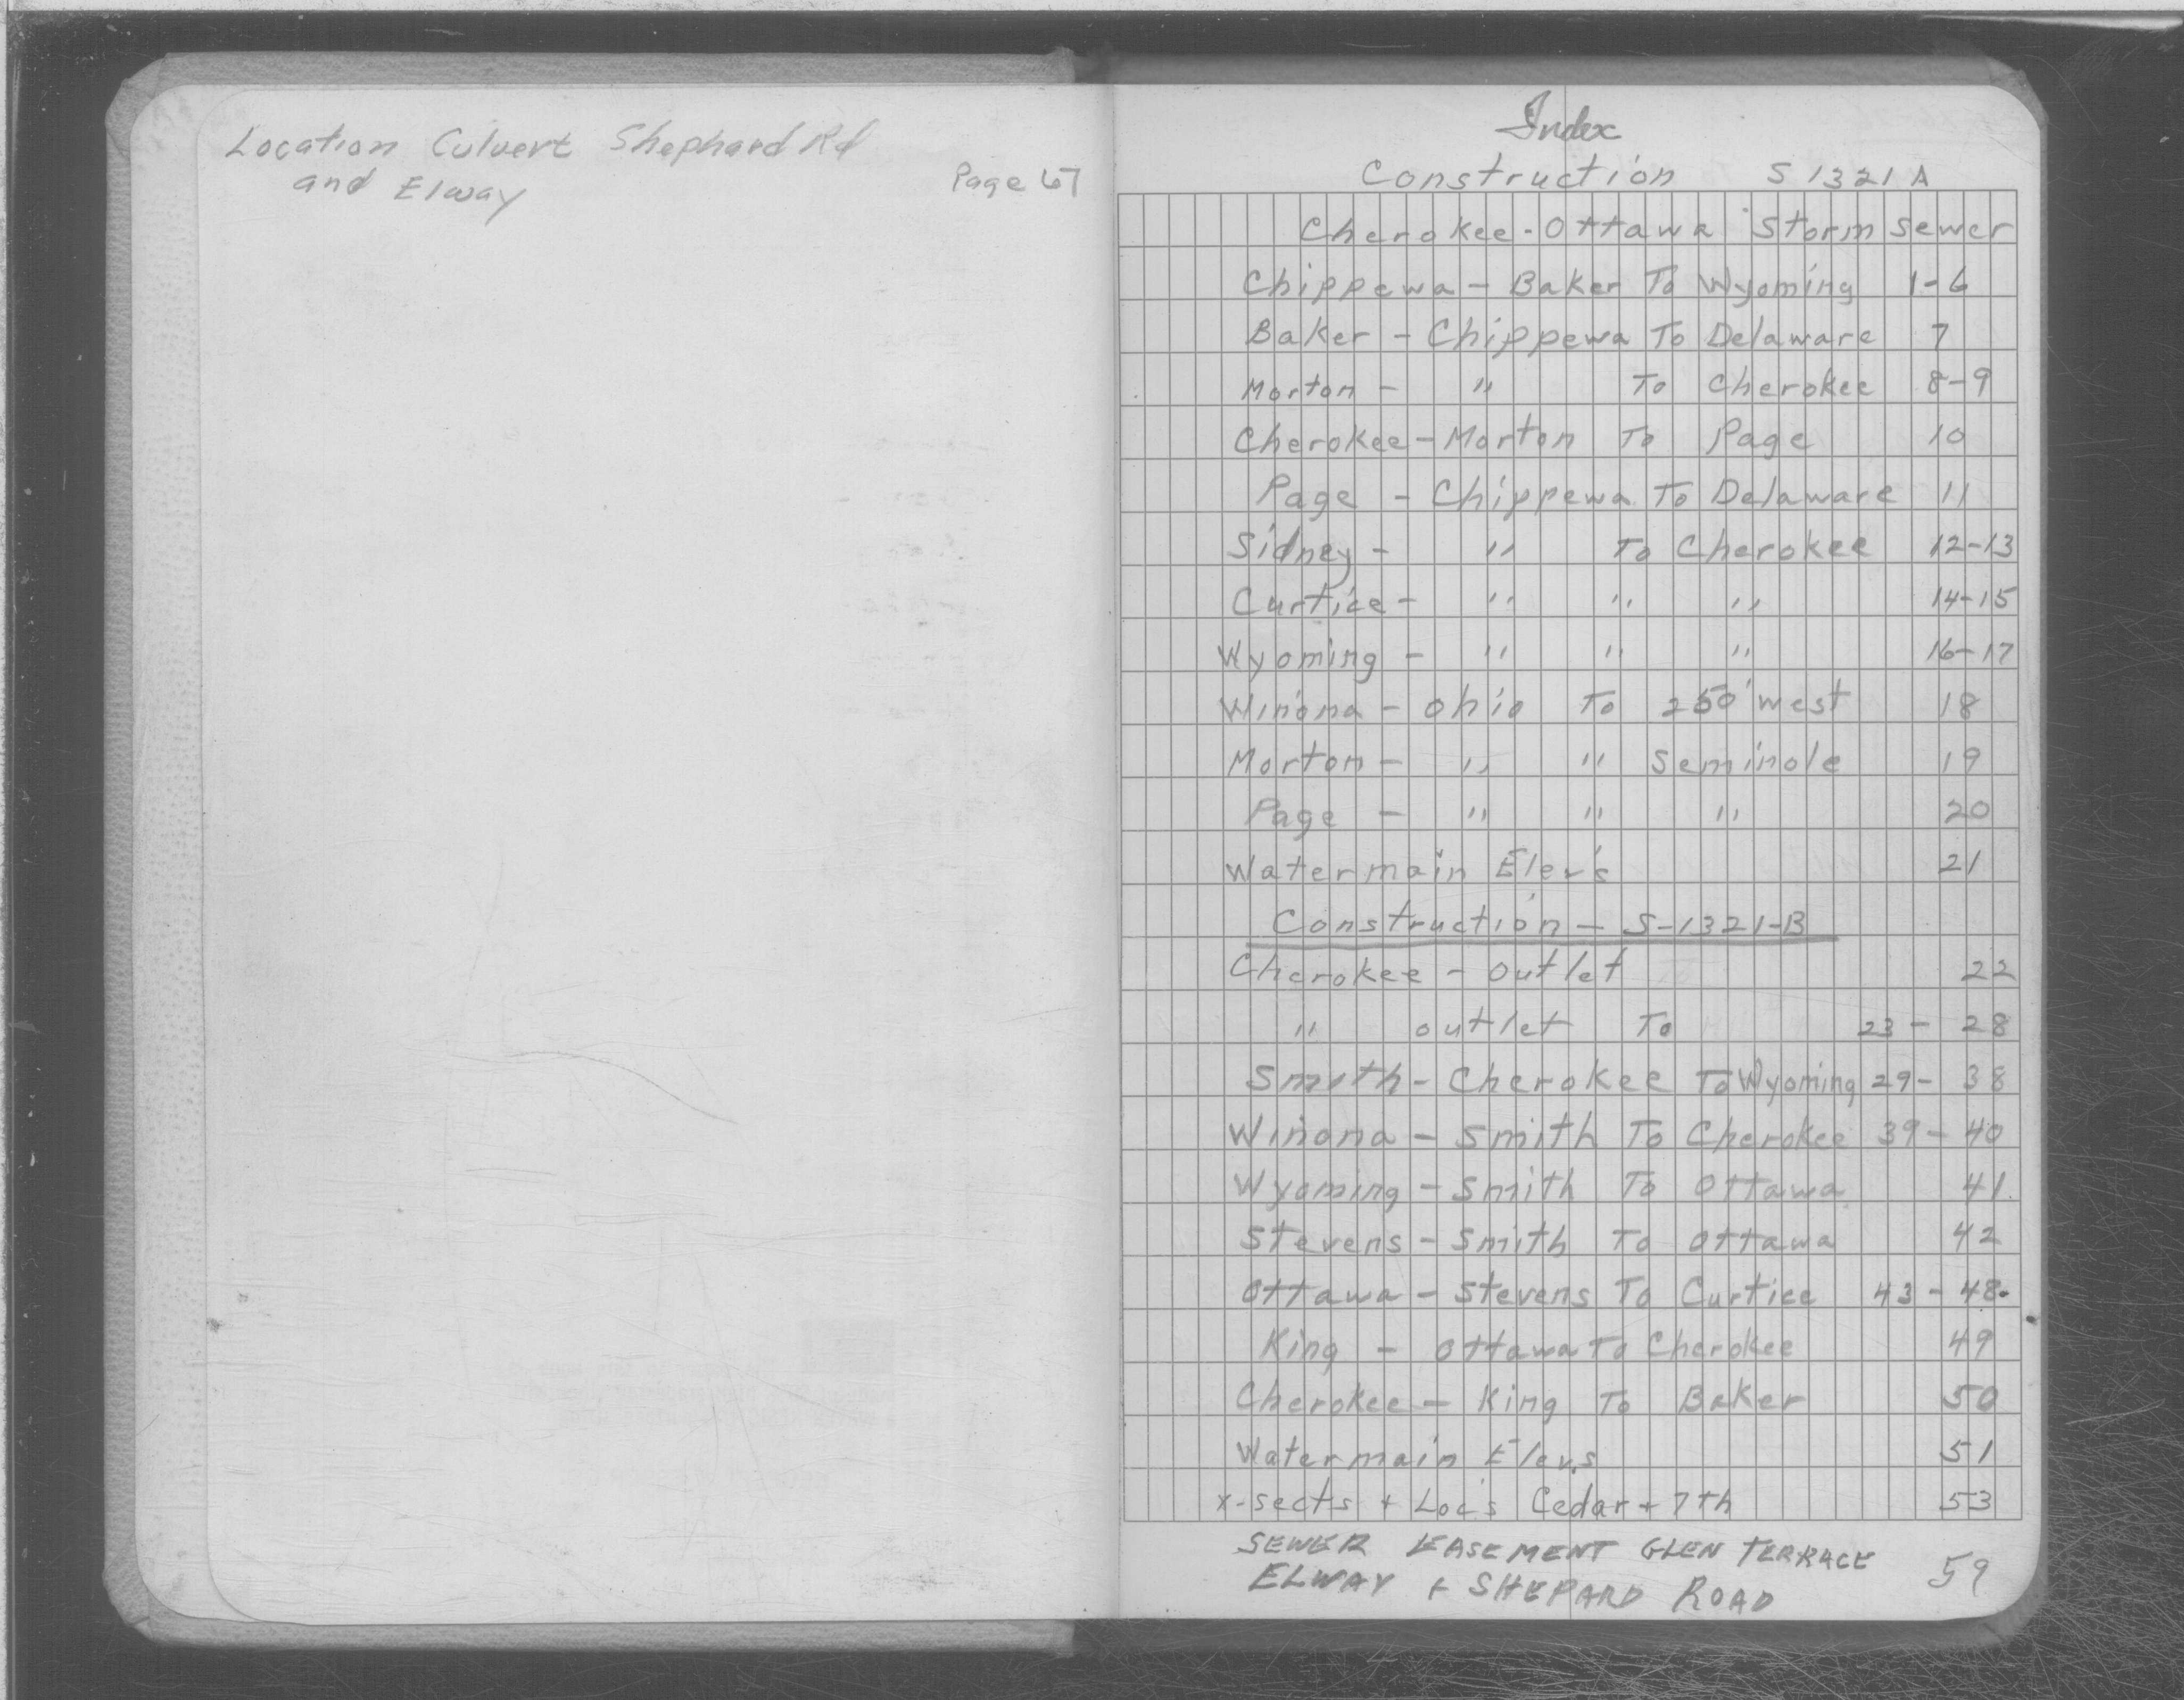 Location Culvert Shephard Rd
and Elway Page 67
Index
Construction S 1321 A
Cherokee-Ottawa Storm Sewer
Chippewa - Baker To Wyoming 1-6
Baker - Chippewa To Delaware 7
Morton - " To Cherokee 8-9
Cherokee - Morton To Page 10
Page - Chippewa To Delaware 11
Sidney - " To Cherokee 12-13
Curtice - " " " 14-15
Wyoming - " " " 16-17
Winona - Ohio To 250' West 18
Morton - " " Seminole 19
Page - " " " 20
Watermain Elev's 21
Construction - S-1321-B
Cherokee - Outlet 22
" outlet To 23 - 28
Smith - Cherokee To Wyoming 29 - 38
Winona - Smith To Cherokee 39 - 40
Wyoming - Smith To Ottawa 41
Stevens - Smith To Ottawa 42
Ottawa - Stevens To Curtice 43 - 48.
King - Ottawa To Cherokee 49
Cherokee - King To Baker 50
Watermain Elev.s 51
x-sects + Loc's Cedar + 7th 53
SEWER EASEMENT GLEN TERRACE
ELWAY + SHEPARD ROAD 59